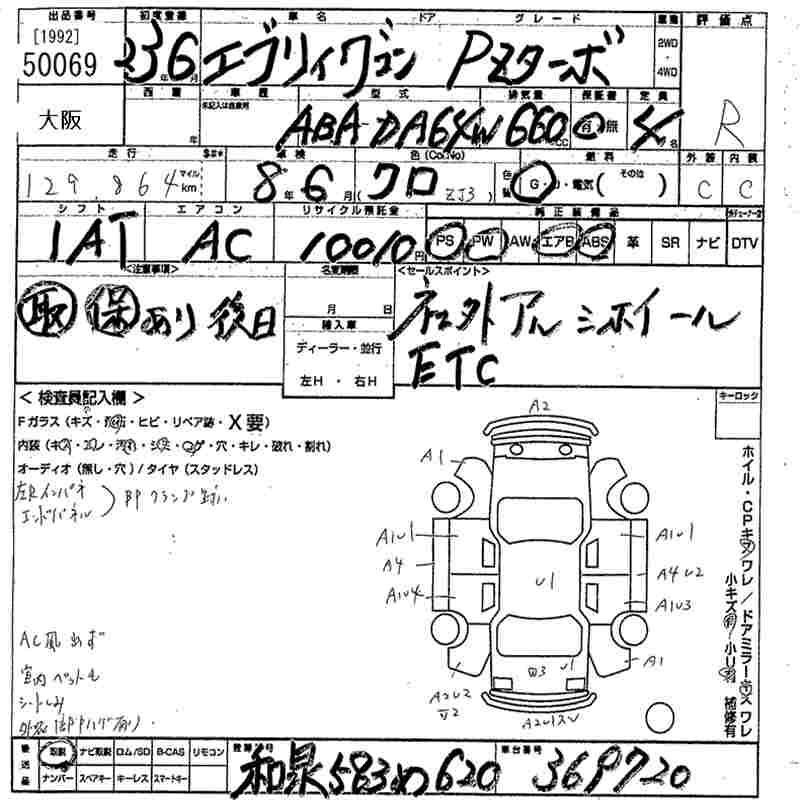 出品番号 初度登録 車名 ドア グレード 車歴 評価点
[1992]
50069 23 年 6 月 エブリィワゴン PZターボ 2WD・4WD R
大阪
車種 型式 排気量 保証書 定員
記入は自家用
ABA-DA64W 660 cc 有・無 4名
走行 車検 色(Co.No) 燃料 外装 内装
129,864 マイル km 8年 6月 (クロ ZJ3) G・D・電気( その他 ) C C
シフト エアコン リサイクル預託金 純正装備品
IAT AC 10010円 PS PW AW エアB ABS 革 SR ナビ DTV
<注意事項> 名変期限 <セールスポイント>
取 保 あり 後日 月 日 社外アルミホイール
輸入車 ETC
ディーラー・並行
左H・右H
<検査員記入欄> キーロック
Fガラス(キズ・ ・ヒビ・リペア跡・X要)
内装(キズ・ ・汚れ・ ・コゲ・穴・キレ・破れ・割れ)
オーディオ(無し・穴)/タイヤ(スタッドレス)
左Rインパネ
エンドパネル
AC風出ず
室内ペットモ
シートしみ
A2
A1
A1U1 A1U1
A4 U1 A4 U2
A1U4 A1U3
A1
U1
A2U2
ホイル・CPキズワレ/ドアミラーキズワレ
小キズ有/小U有 補修有
後送品 取説 ナビ取説 ロム/SD B-CAS リモコン 登録番号 車台番号
ナンバー スペアキー キーレス スマートキー 和泉583め620 369720